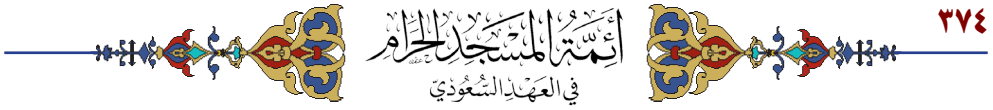 ٣٧٤
أَئِمَّةُ المَسْجِدِ الحَرَامِ
فِي العَهْدِ السُّعُودِيّ